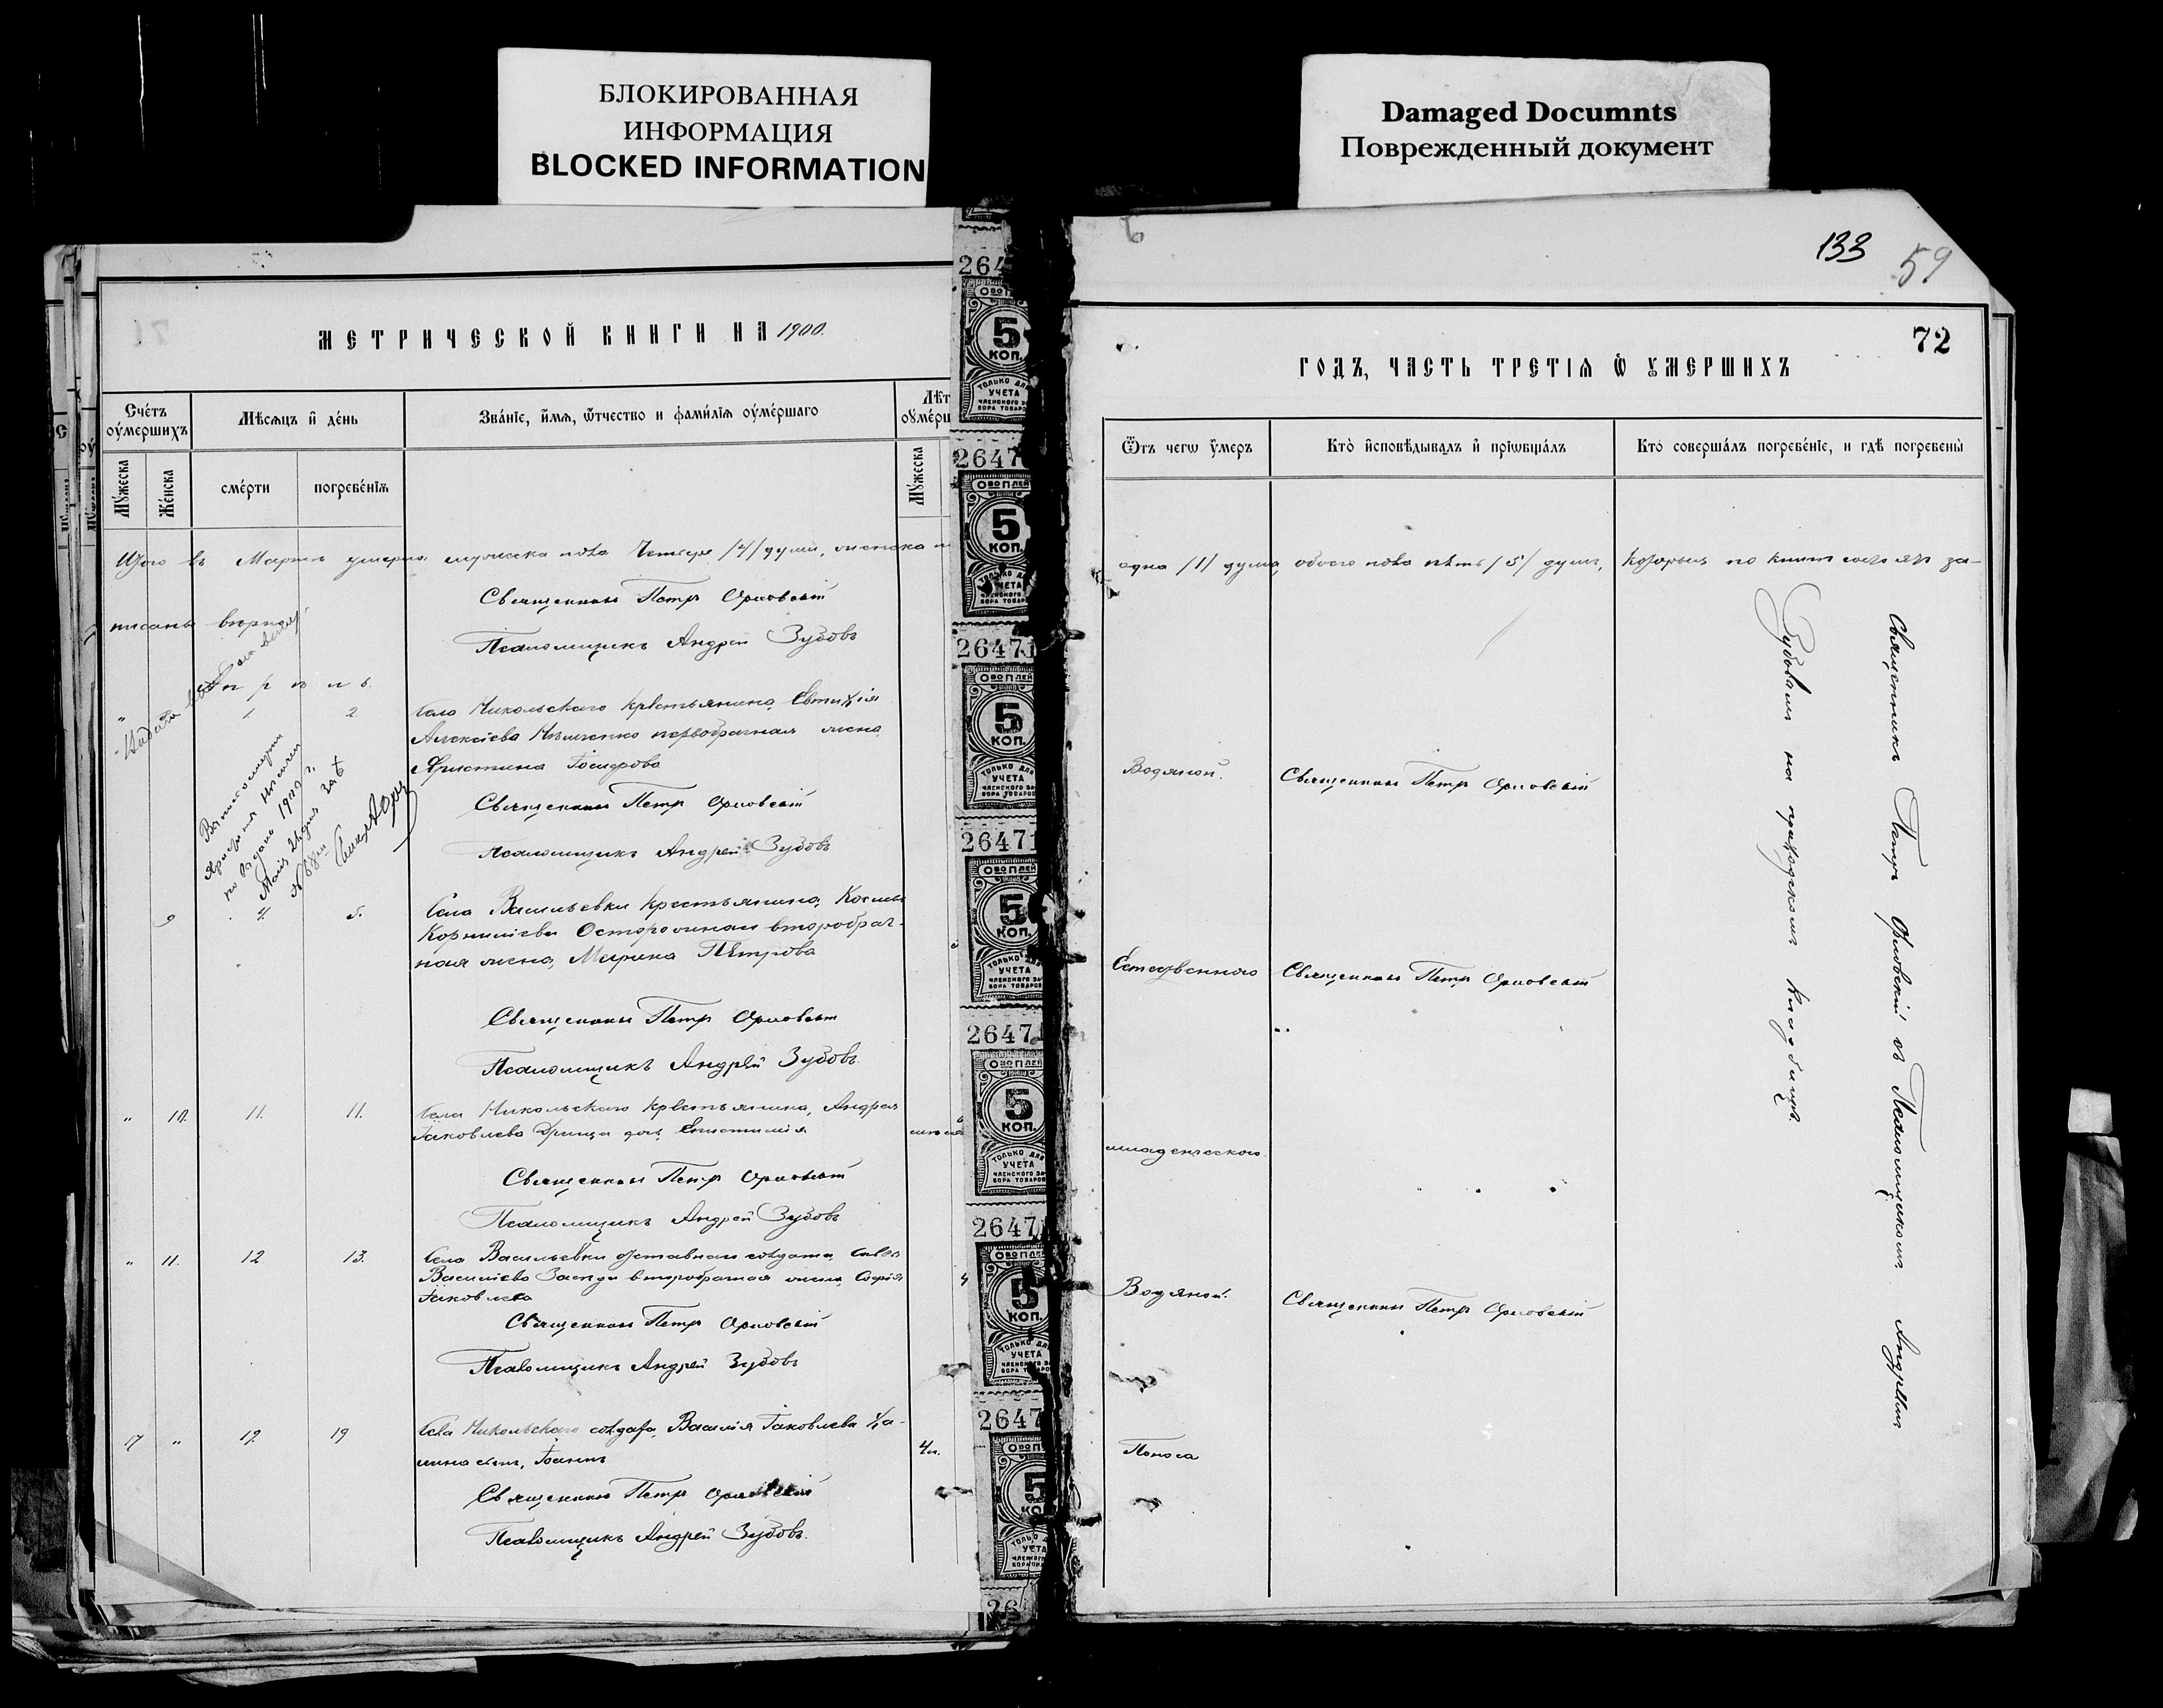 БЛОКИРОВАННАЯ
ИНФОРМАЦИЯ
BLOCKED INFORMATION
Damaged Documnts
Поврежденный документ
133
59
МЕТРИЧЕСКОЙ КНИГИ НА 1900.
Счетъ оумершихъ
Мѣсяцъ и день
Званіе, имя, отчество и фамилія оумершаго
Лѣт
оумерш
Мужеска
Женска
смерти
погребенія
Мужеска
Итого въ Мартѣ умерло: мужеска пола Четыре /4/ души, женска п
Священникъ Петръ Орловскій
писаны вѣрно
Псаломщикъ Андрей Зубовъ
Апрѣль
" 1. 2.
Села Никольскаго крестьянина, Евтихія
Алексіева первобрачная жена,
Христина Іосифова
Священникъ Петръ Орловскій
Псаломщикъ Андрей Зубовъ
1909 г.
9 4. 5.
Села Васильевки крестьянина, Космы
Корниліева второбрач-
ная жена, Марина Пѣтрова
Священникъ Петръ Орловскій
Псаломщикъ Андрей Зубовъ
" 10. 11. 11.
Села Никольскаго крестьянина, Андрея
Іаковлева дочь,
Священникъ Петръ Орловскій
Псаломщикъ Андрей Зубовъ
" 11. 12. 13.
Села Васильевки отставнаго солдата, Саввы
Василіева второбрачная жена, Софія
Іаковлева
4
Священникъ Петръ Орловскій
Псаломщикъ Андрей Зубовъ
17 " 19. 19
Села Никольскаго солдата, Василія Іаковлева
сынъ, Іоаннъ
4 м.
Священникъ Петръ Орловскій
Псаломщикъ Андрей Зубовъ.
26471
5
КОП.
ТОЛЬКО ДЛЯ
УЧЕТА
72
ГОДЪ, ЧАСТЬ ТРЕТІЯ Ѽ УМЕРШИХЪ
Ѿтъ чегѡ умеръ
Кто исповѣдывалъ и пріѡбщалъ
Кто совершалъ погребеніе, и гдѣ погребены
одна /1/ душа, обоего пола пѣть /5/ душъ, которыя по книгѣ за-
Водяной.
Священникъ Петръ Орловскій
Естественно
Священникъ Петръ Орловскій
младенческого
Водяной.
Священникъ Петръ Орловскій
Поноса
Священникъ Петръ Орловскій съ Псаломщикомъ Андрѣемъ
Зубовымъ на приходскомъ кладбищѣ.